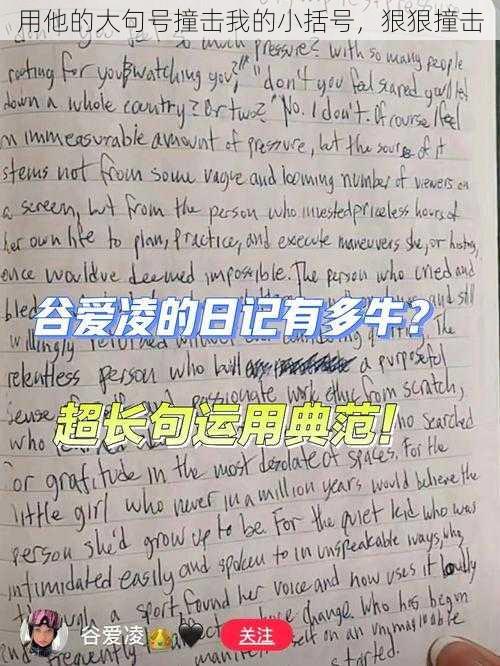 用他的大句号撞击我的小括号，狠狠撞击
pressure? with so many people
rooting for you, watching you?" "don't you feel scared you'll let
down a whole country? Or two?" No. I don't. Of course I feel
an immeasurable amount of pressure, but the source of it
stems not from some vague and looming number of viewers on
a screen, but from the person who invested priceless hours of
her own life to plan, practice, and execute maneuvers she, or history,
once would've deemed impossible. The person who cried and
bled and still
谷爱凌的日记有多牛？
willingly returned The
relentless person who built a purposeful
sense passionate work ethic from scratch,
超长句运用典范！
who who searched
for gratitude in the most desolate of spaces. For the
little girl who never in a million years would believe the
person she'd grow up to be. For the quiet kid who was
intimidated easily and spoken to in unspeakable ways, who,
through a sport, found her voice and now uses it loudly
and frequently to change. who has begun
谷爱凌
关注
self on an unimaginable
started.